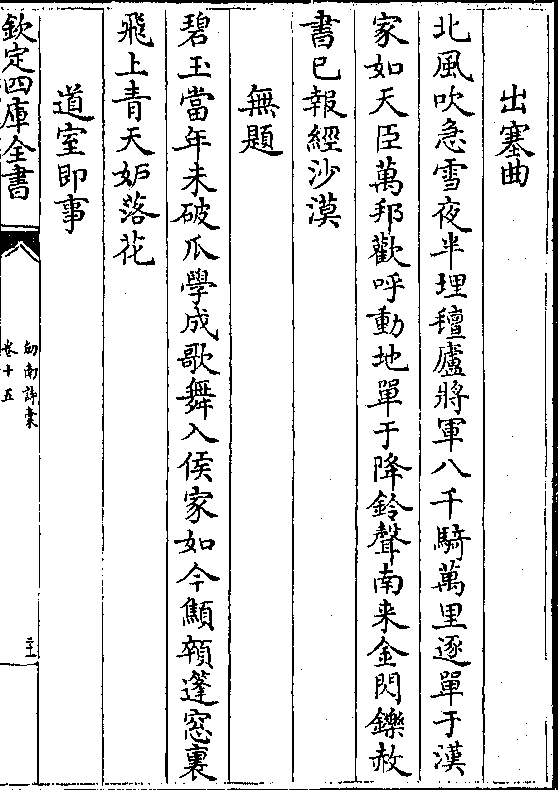 出塞曲
北風吹急雪夜半埋氊廬將軍八千騎萬里逐單于漢
家如天臣萬邦歡呼動地單于降鈴聲南来金閃鑠赦
書已報經沙漠
無題
碧玉當年未破瓜學成歌舞入侯家如今顦顇蓬窓裏
飛上青天妒落花
道室即事
欽定四庫全書
劍南詩稾
卷十五